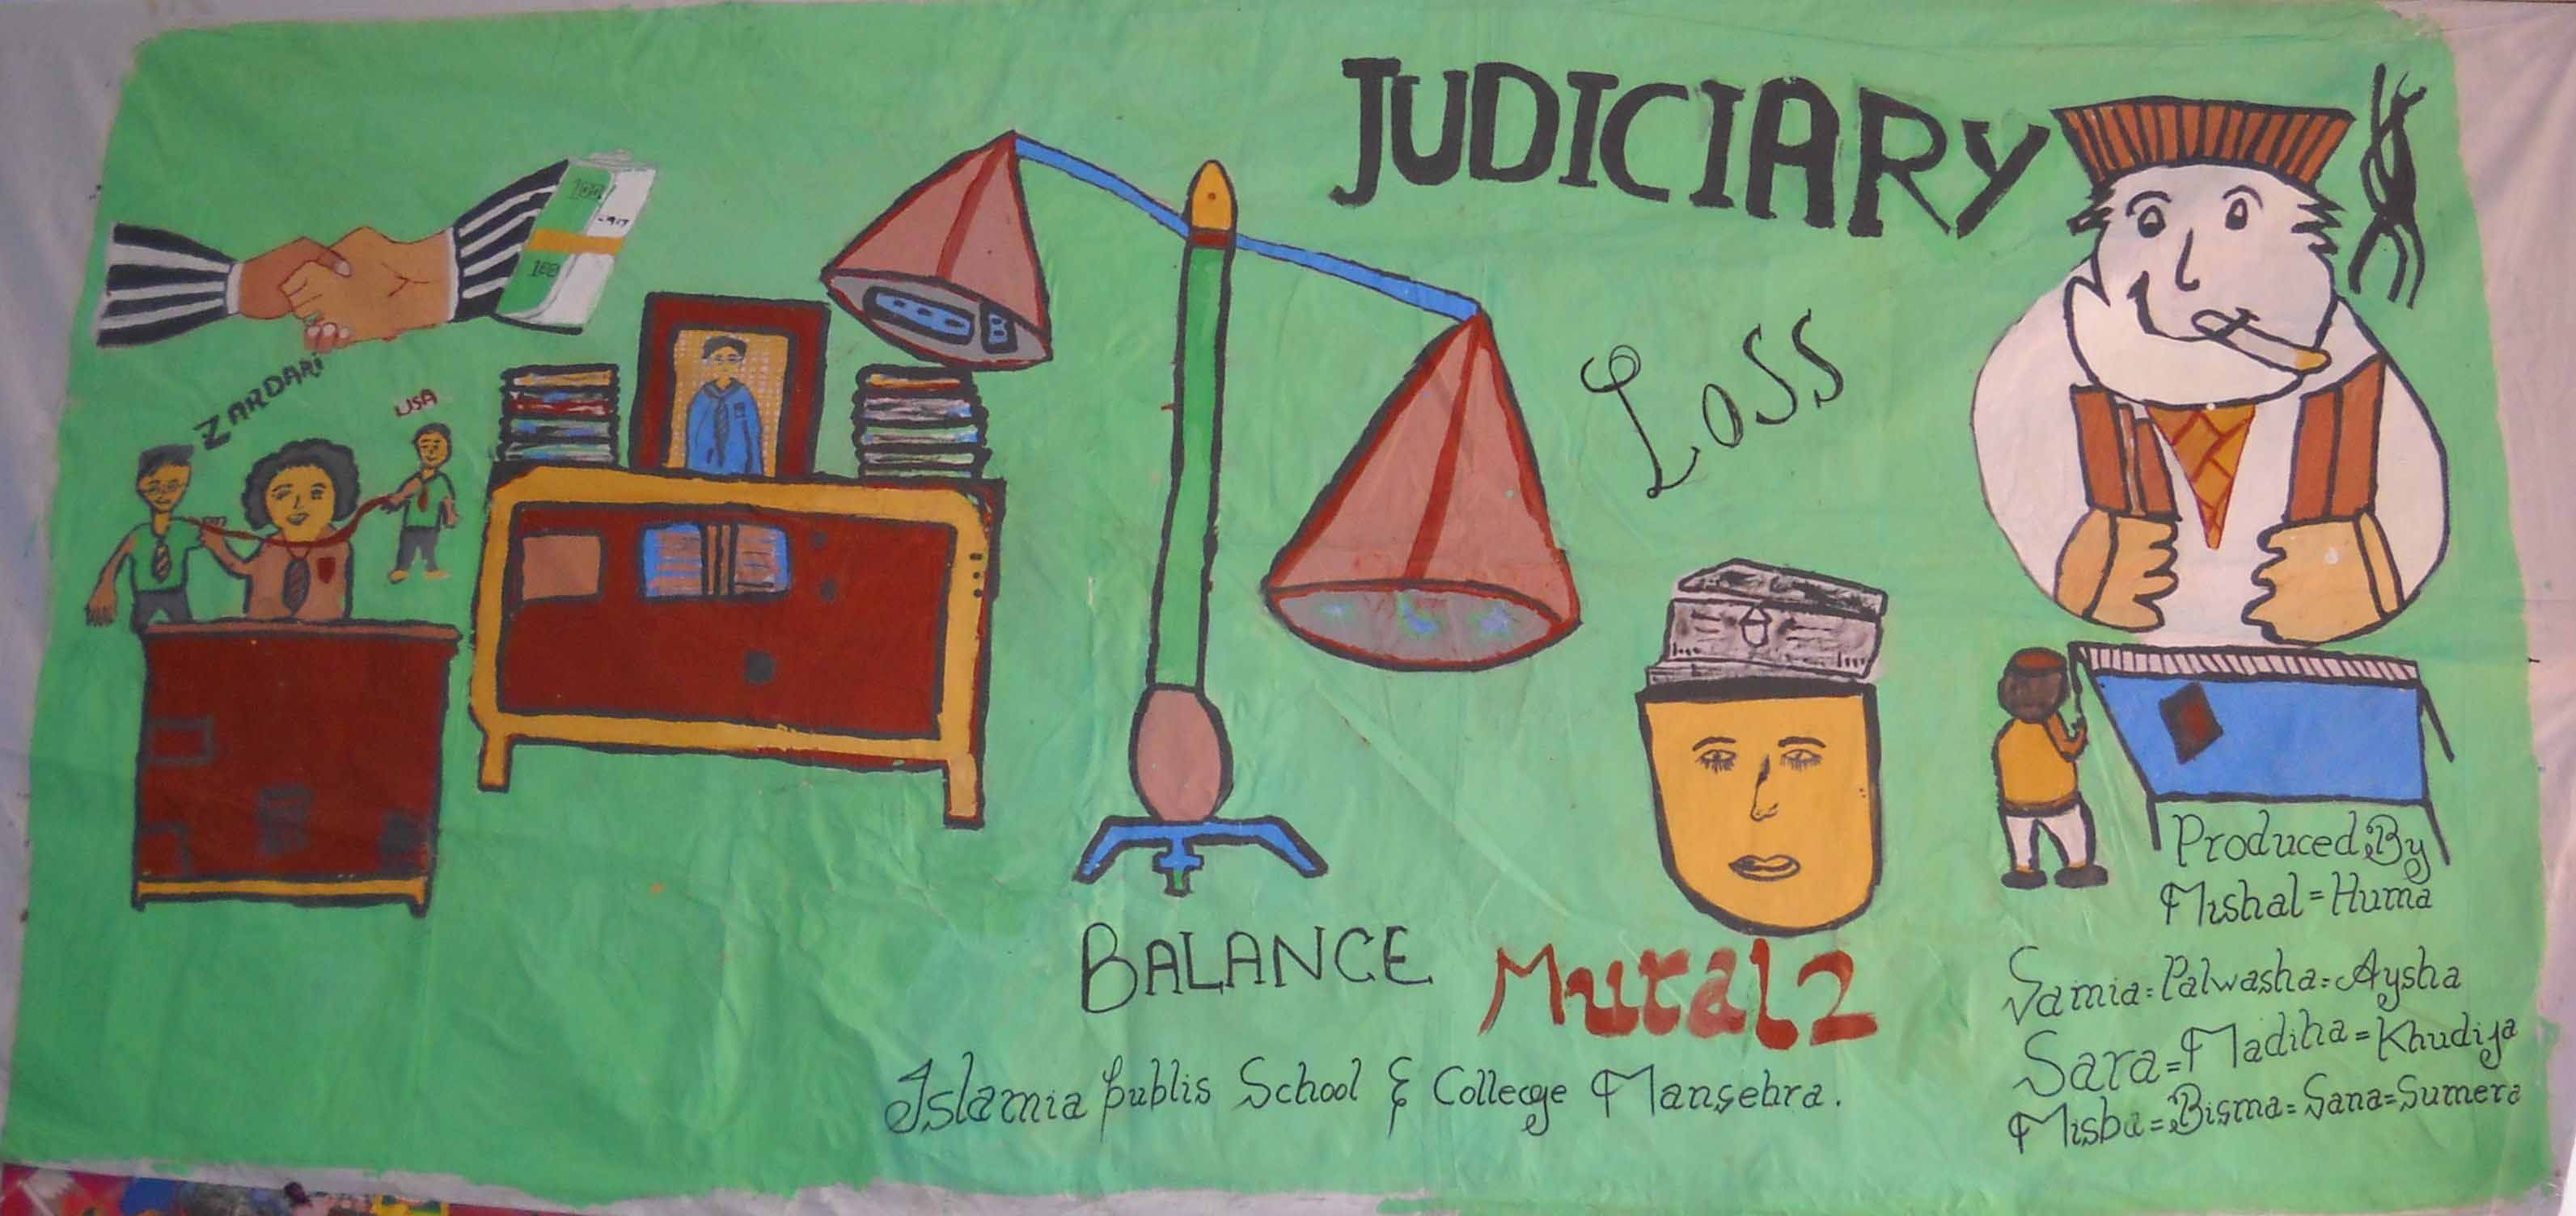 JUDICIARY
100
100
ZARDARI
USA
Loss
BALANCE
Mural 2
Islamia Publis School & Collecge Mansehra.
Produced By
Mishal = Huma
Samia = Palwasha = Aysha
Sara = Madiha = Khudija
Misba = Bisma = Sana = Sumera